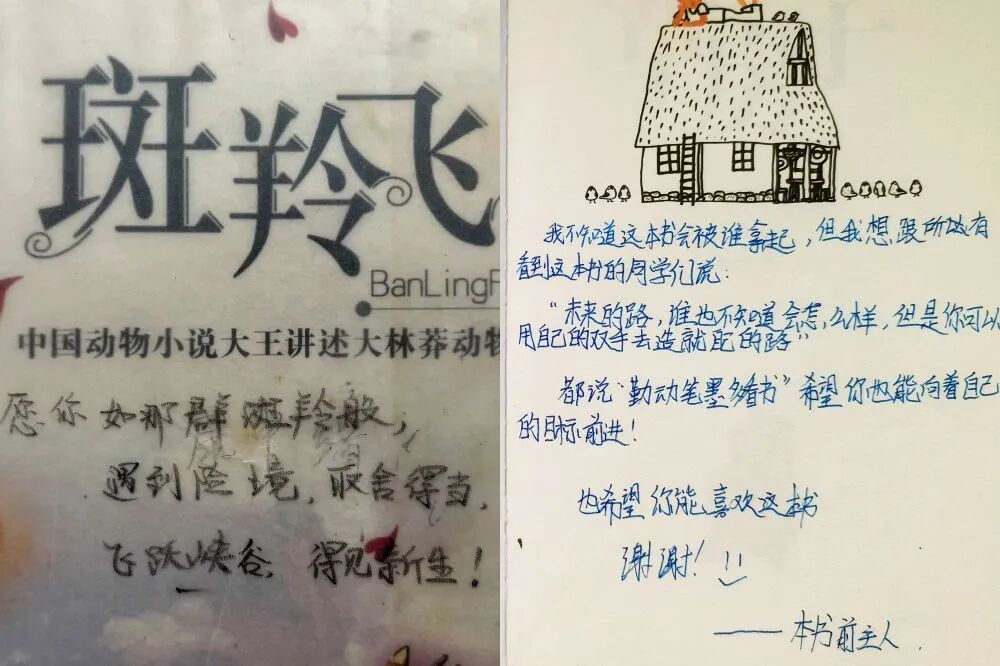 斑羚飞
BanLingF
中国动物小说大王讲述大林莽动物
愿你如那群斑羚般，
遇到险境，取舍得当，
飞跃峡谷，得见新生！
我不知道这本书会被谁拿起，但我想跟所有
看到这本书的同学们说：
“未来的路，谁也不知道会怎么样，但是你可以
用自己的双手去造就 的路”
都说“勤动笔墨多看书”希望你也能向着自己
的目标前进！
也希望你能喜欢这本书
谢谢！
——本书前主人